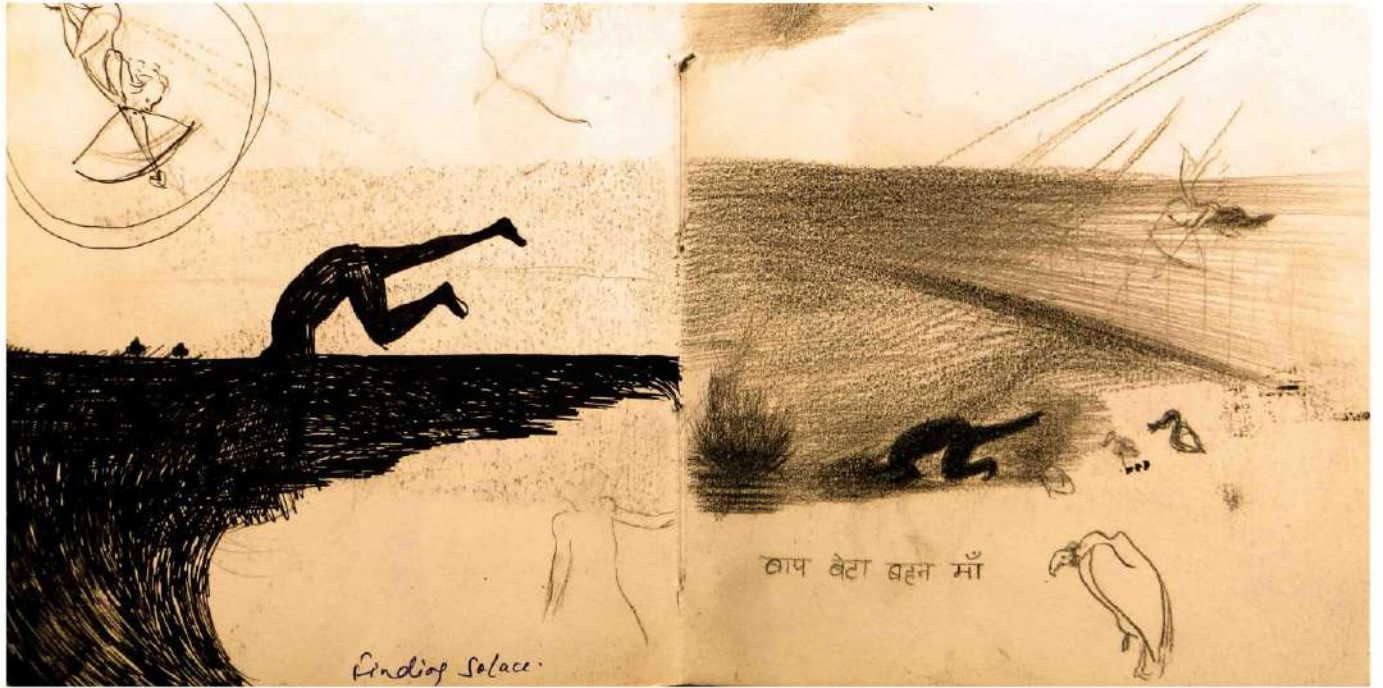 Finding Solace.
बाप बेटा बहन माँ